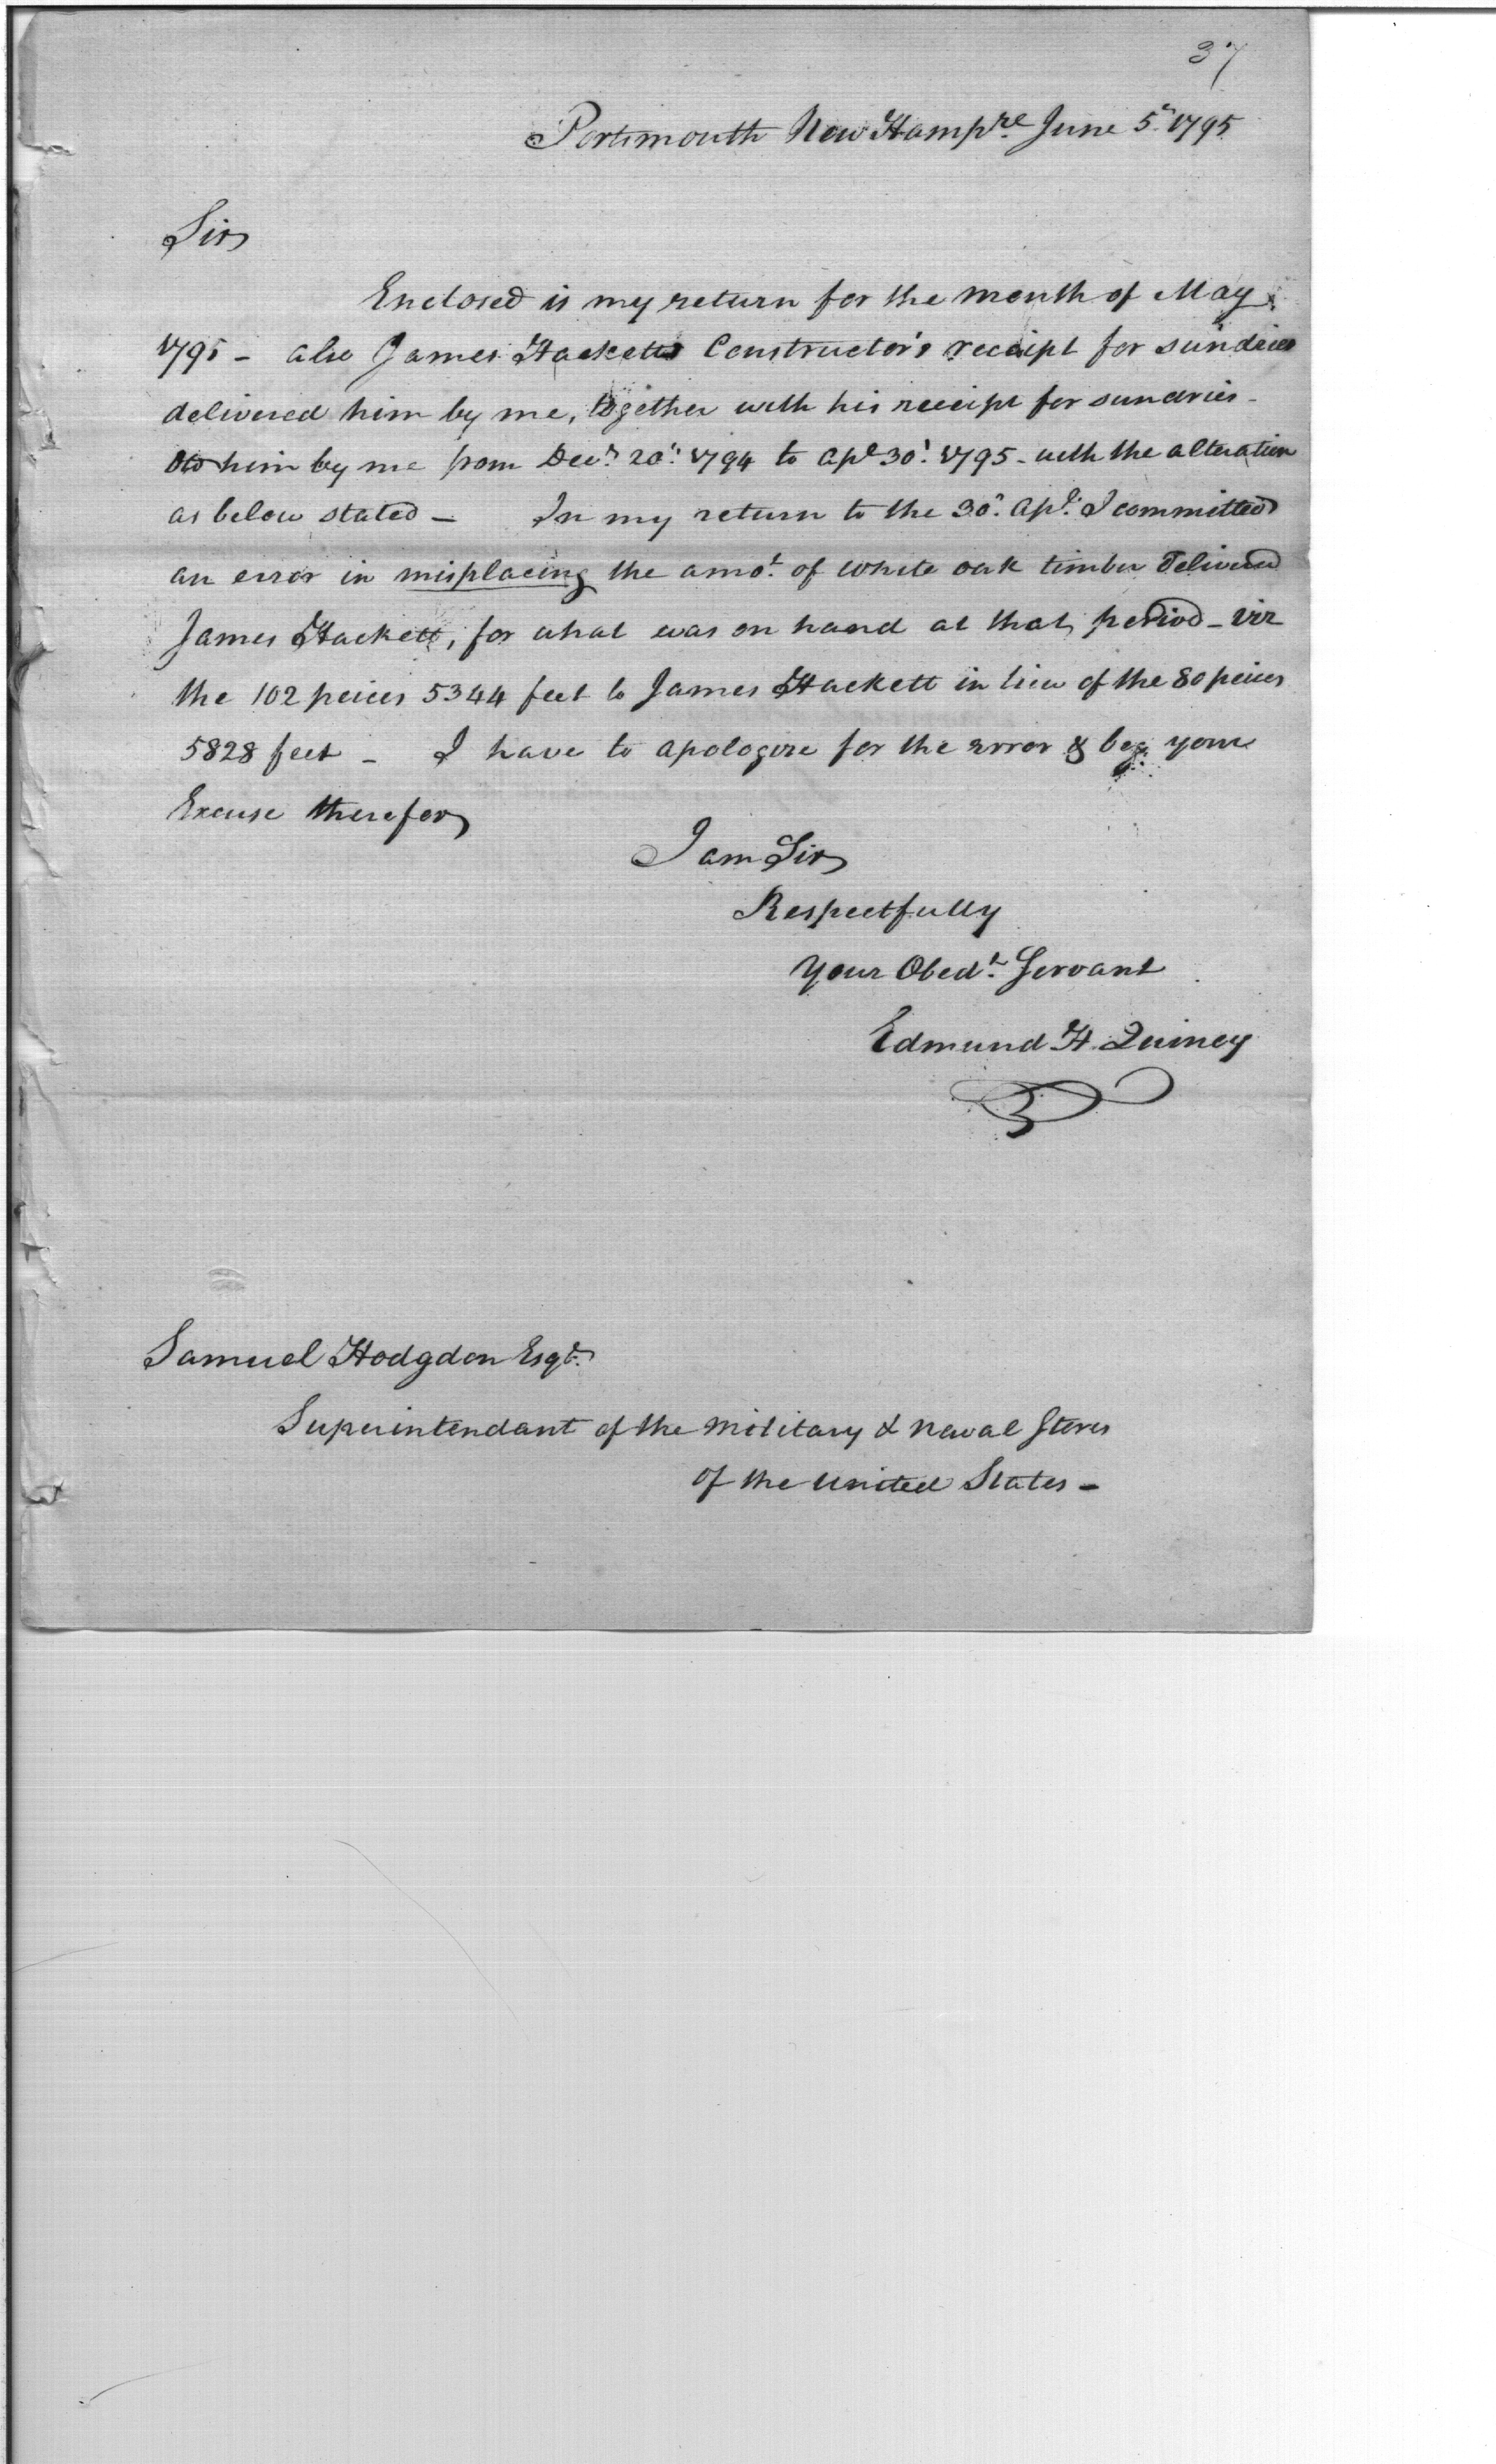 37
Portsmouth New Hampre. June 5. 1795
Sir
Enclosed is my return for the month of May
1795 - also James Hacketts Constructor's receipt for sundries
delivered him by me, together with his receipt for sundries -
him by me from Decr. 20. 1794 to apl 30. 1795 - with the alteration
as below stated - In my return to the 30. apl. I committed
an error in misplacing the amot. of white oak timber delivered
James Hackett, for what was on hand at that period - viz
the 102 peices 5344 feet to James Hackett in lieu of the 80 peices
5828 feet - I have to apologize for the error & beg your
Excuse therefor
I am Sir
Respectfully
Your Obedt. Servant
Edmund H. Quincy
Samuel Hodgdon Esqr.
Superintendant of the military & naval Stores
of the united States -